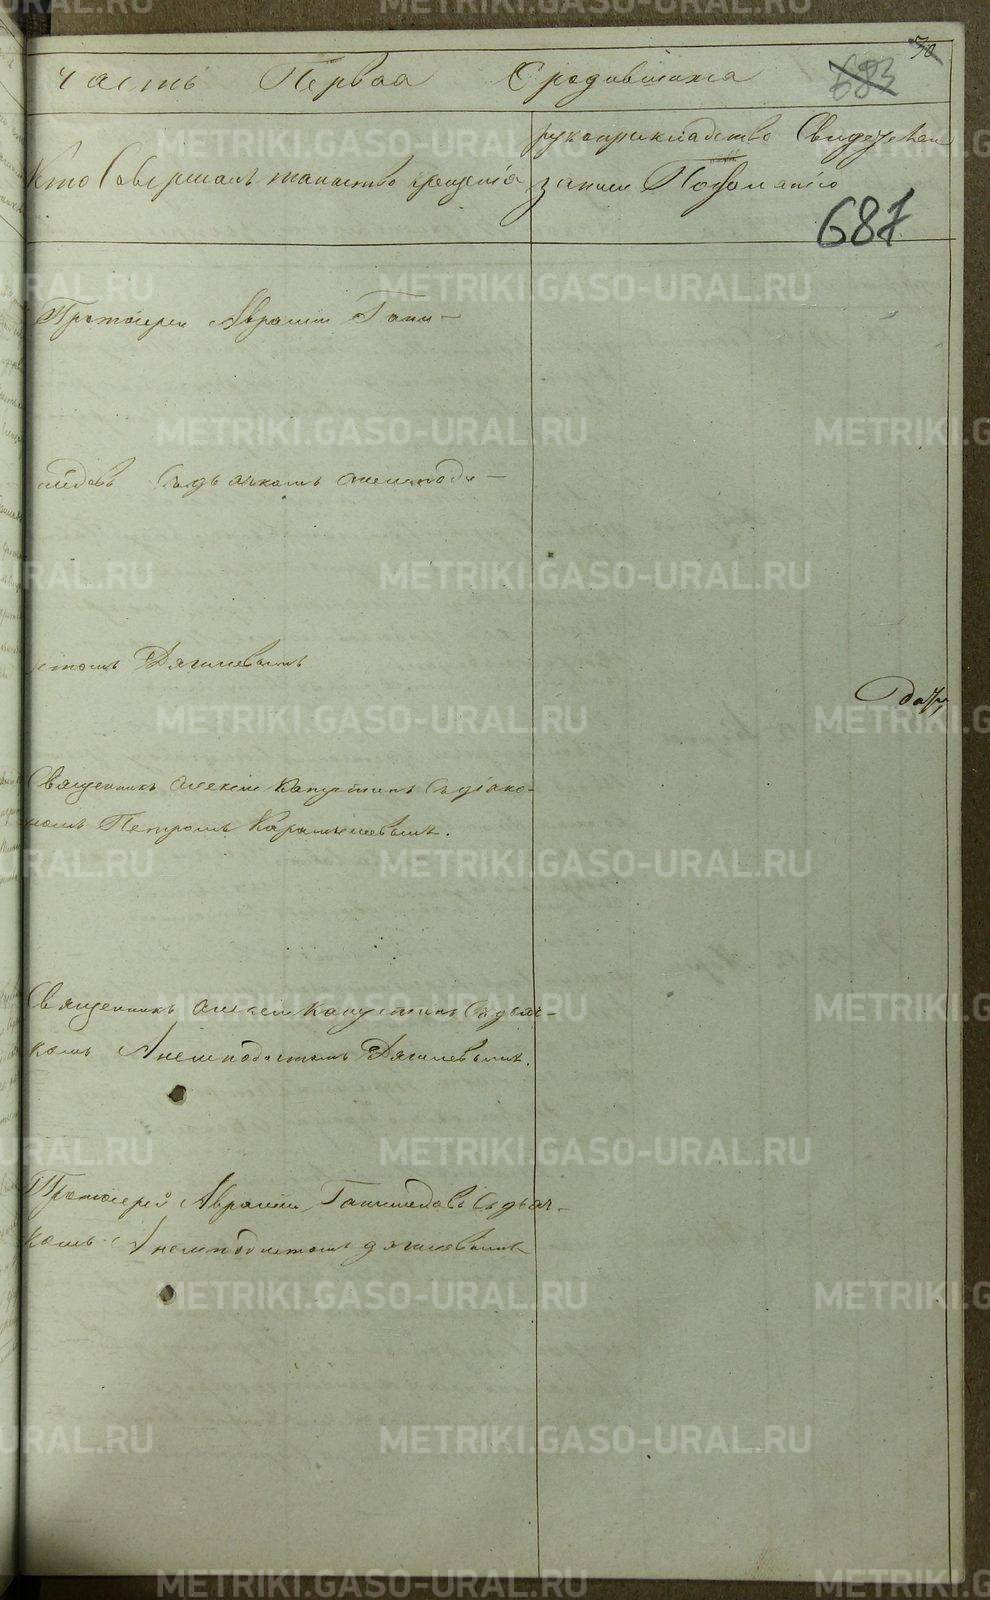 70
Часть Первая О родившихся
683
Кто Совершалъ таинство крещенія
рукоприкладство Свидетелей
записи По желанію
687
Протоіерей Авраамій Гани-
мѣдовъ Съ дьячкомъ Анемподи-
стомъ Дягилевымъ
Священникъ Алексій Капустинъ Съ діако-
номъ Петромъ Карамышевымъ.
Священникъ Алексѣй Капустинъ Съ дьяч-
комъ Анемподистомъ Дягилевымъ.
Протоіерей Авраамій Ганимедовъ Съ дьяч-
комъ Анемподистомъ Дягилевымъ
METRIKI.GASO-URAL.RU